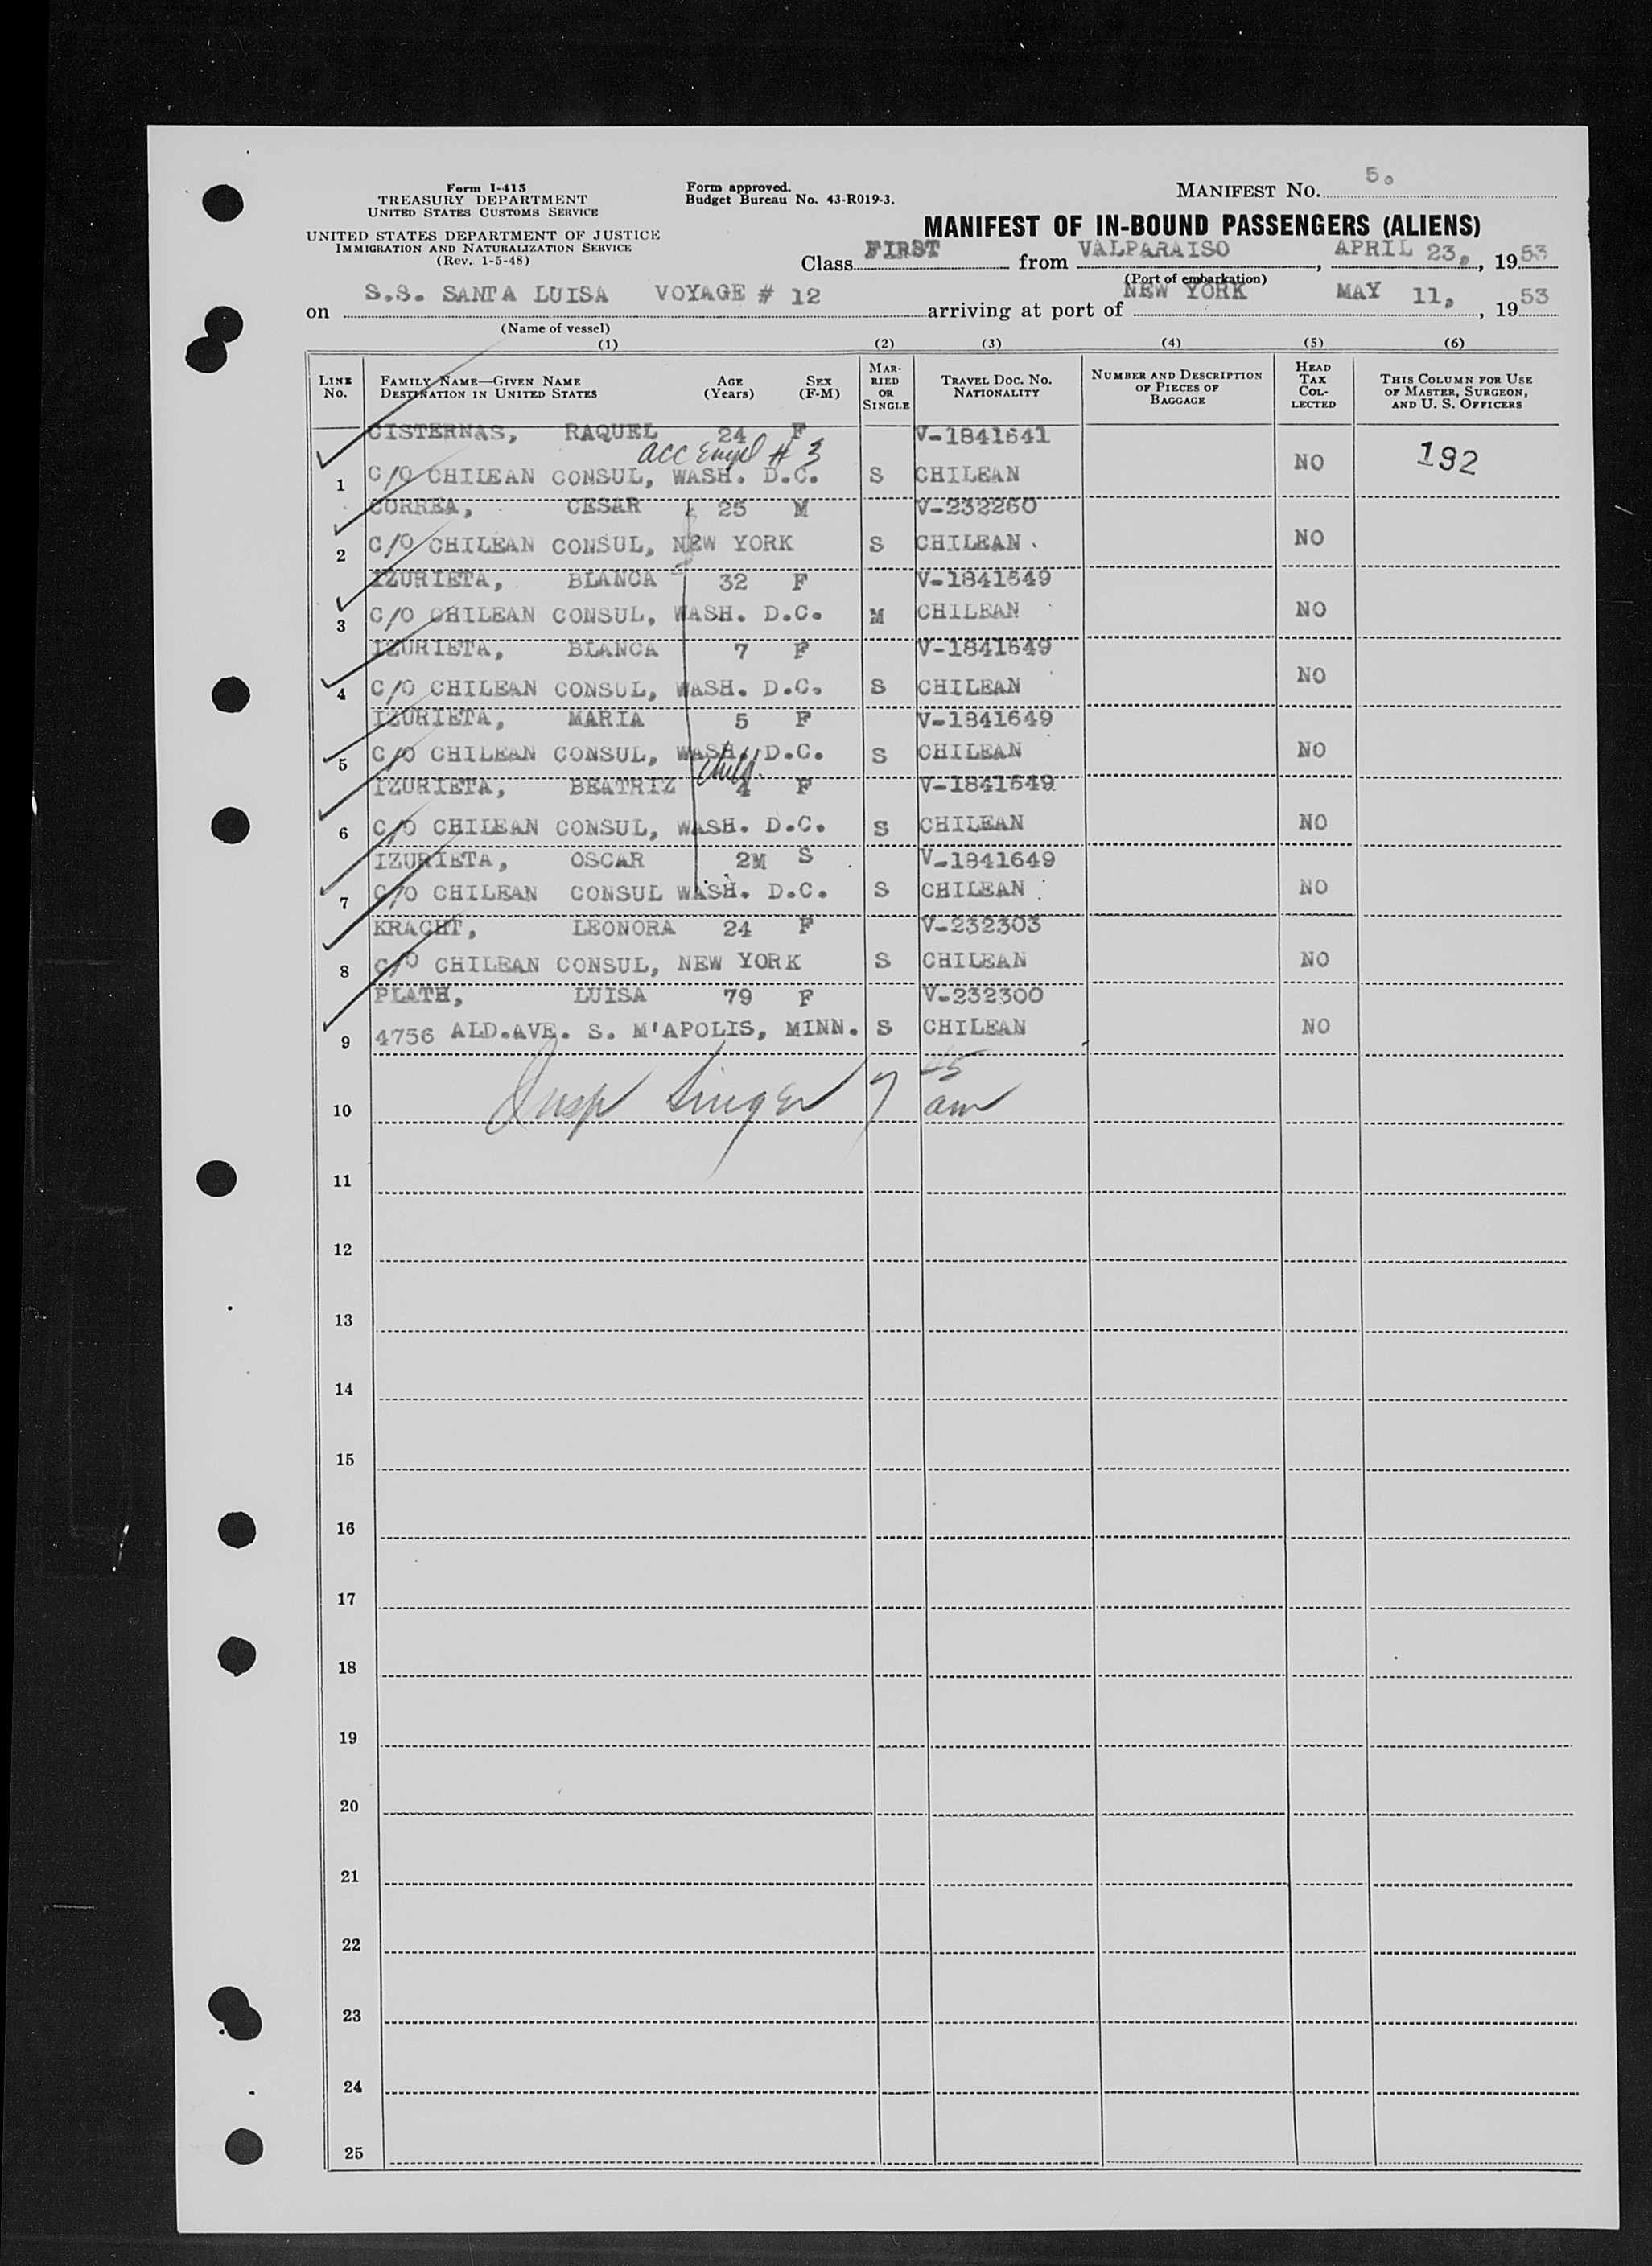 Form I-415
TREASURY DEPARTMENT
UNITED STATES CUSTOMS SERVICE
UNITED STATES DEPARTMENT OF JUSTICE
IMMIGRATION AND NATURALIZATION SERVICE
(Rev. 1-5-48)
Form approved.
Budget Bureau No. 43-R019-3.
MANIFEST NO. 5.
MANIFEST OF IN-BOUND PASSENGERS (ALIENS)
Class FIRST from VALPARAISO, APRIL 23,, 1953
(Port of embarkation)
on S.S. SANTA LUISA VOYAGE # 12 arriving at port of NEW YORK MAY 11,, 1953
(Name of vessel)
(1) (2) (3) (4) (5) (6)
LINE NO. FAMILY NAME—GIVEN NAME DESTINATION IN UNITED STATES AGE (Years) SEX (F-M) MARRIED OR SINGLE TRAVEL DOC. NO. NATIONALITY NUMBER AND DESCRIPTION OF PIECES OF BAGGAGE HEAD TAX COLLECTED THIS COLUMN FOR USE OF MASTER, SURGEON, AND U. S. OFFICERS
CISTERNAS, RAQUEL 24 F V-1841641
acc # 3
1 C/O CHILEAN CONSUL, WASH. D.C. S CHILEAN NO 192
CORREA, CESAR 25 M V-232260
2 C/O CHILEAN CONSUL, NEW YORK S CHILEAN NO
IZURIETA, BLANCA 32 F V-1841649
3 C/O CHILEAN CONSUL, WASH. D.C. M CHILEAN NO
IZURIETA, BLANCA 7 F V-1841649
4 C/O CHILEAN CONSUL, WASH. D.C. S CHILEAN NO
IZURIETA, MARIA 5 F V-1841649
5 C/O CHILEAN CONSUL, WASH. D.C. S CHILEAN NO
IZURIETA, BEATRIZ 4 F V-1841649
6 C/O CHILEAN CONSUL, WASH. D.C. S CHILEAN NO
IZURIETA, OSCAR 2M S V-1841649
7 C/O CHILEAN CONSUL WASH. D.C. S CHILEAN NO
KRACHT, LEONORA 24 F V-232303
8 C/O CHILEAN CONSUL, NEW YORK S CHILEAN NO
PLATH, LUISA 79 F V-232300
9 4756 ALD.AVE. S. M'APOLIS, MINN. S CHILEAN NO
10 Insp Singer 7 45 am
11
12
13
14
15
16
17
18
19
20
21
22
23
24
25